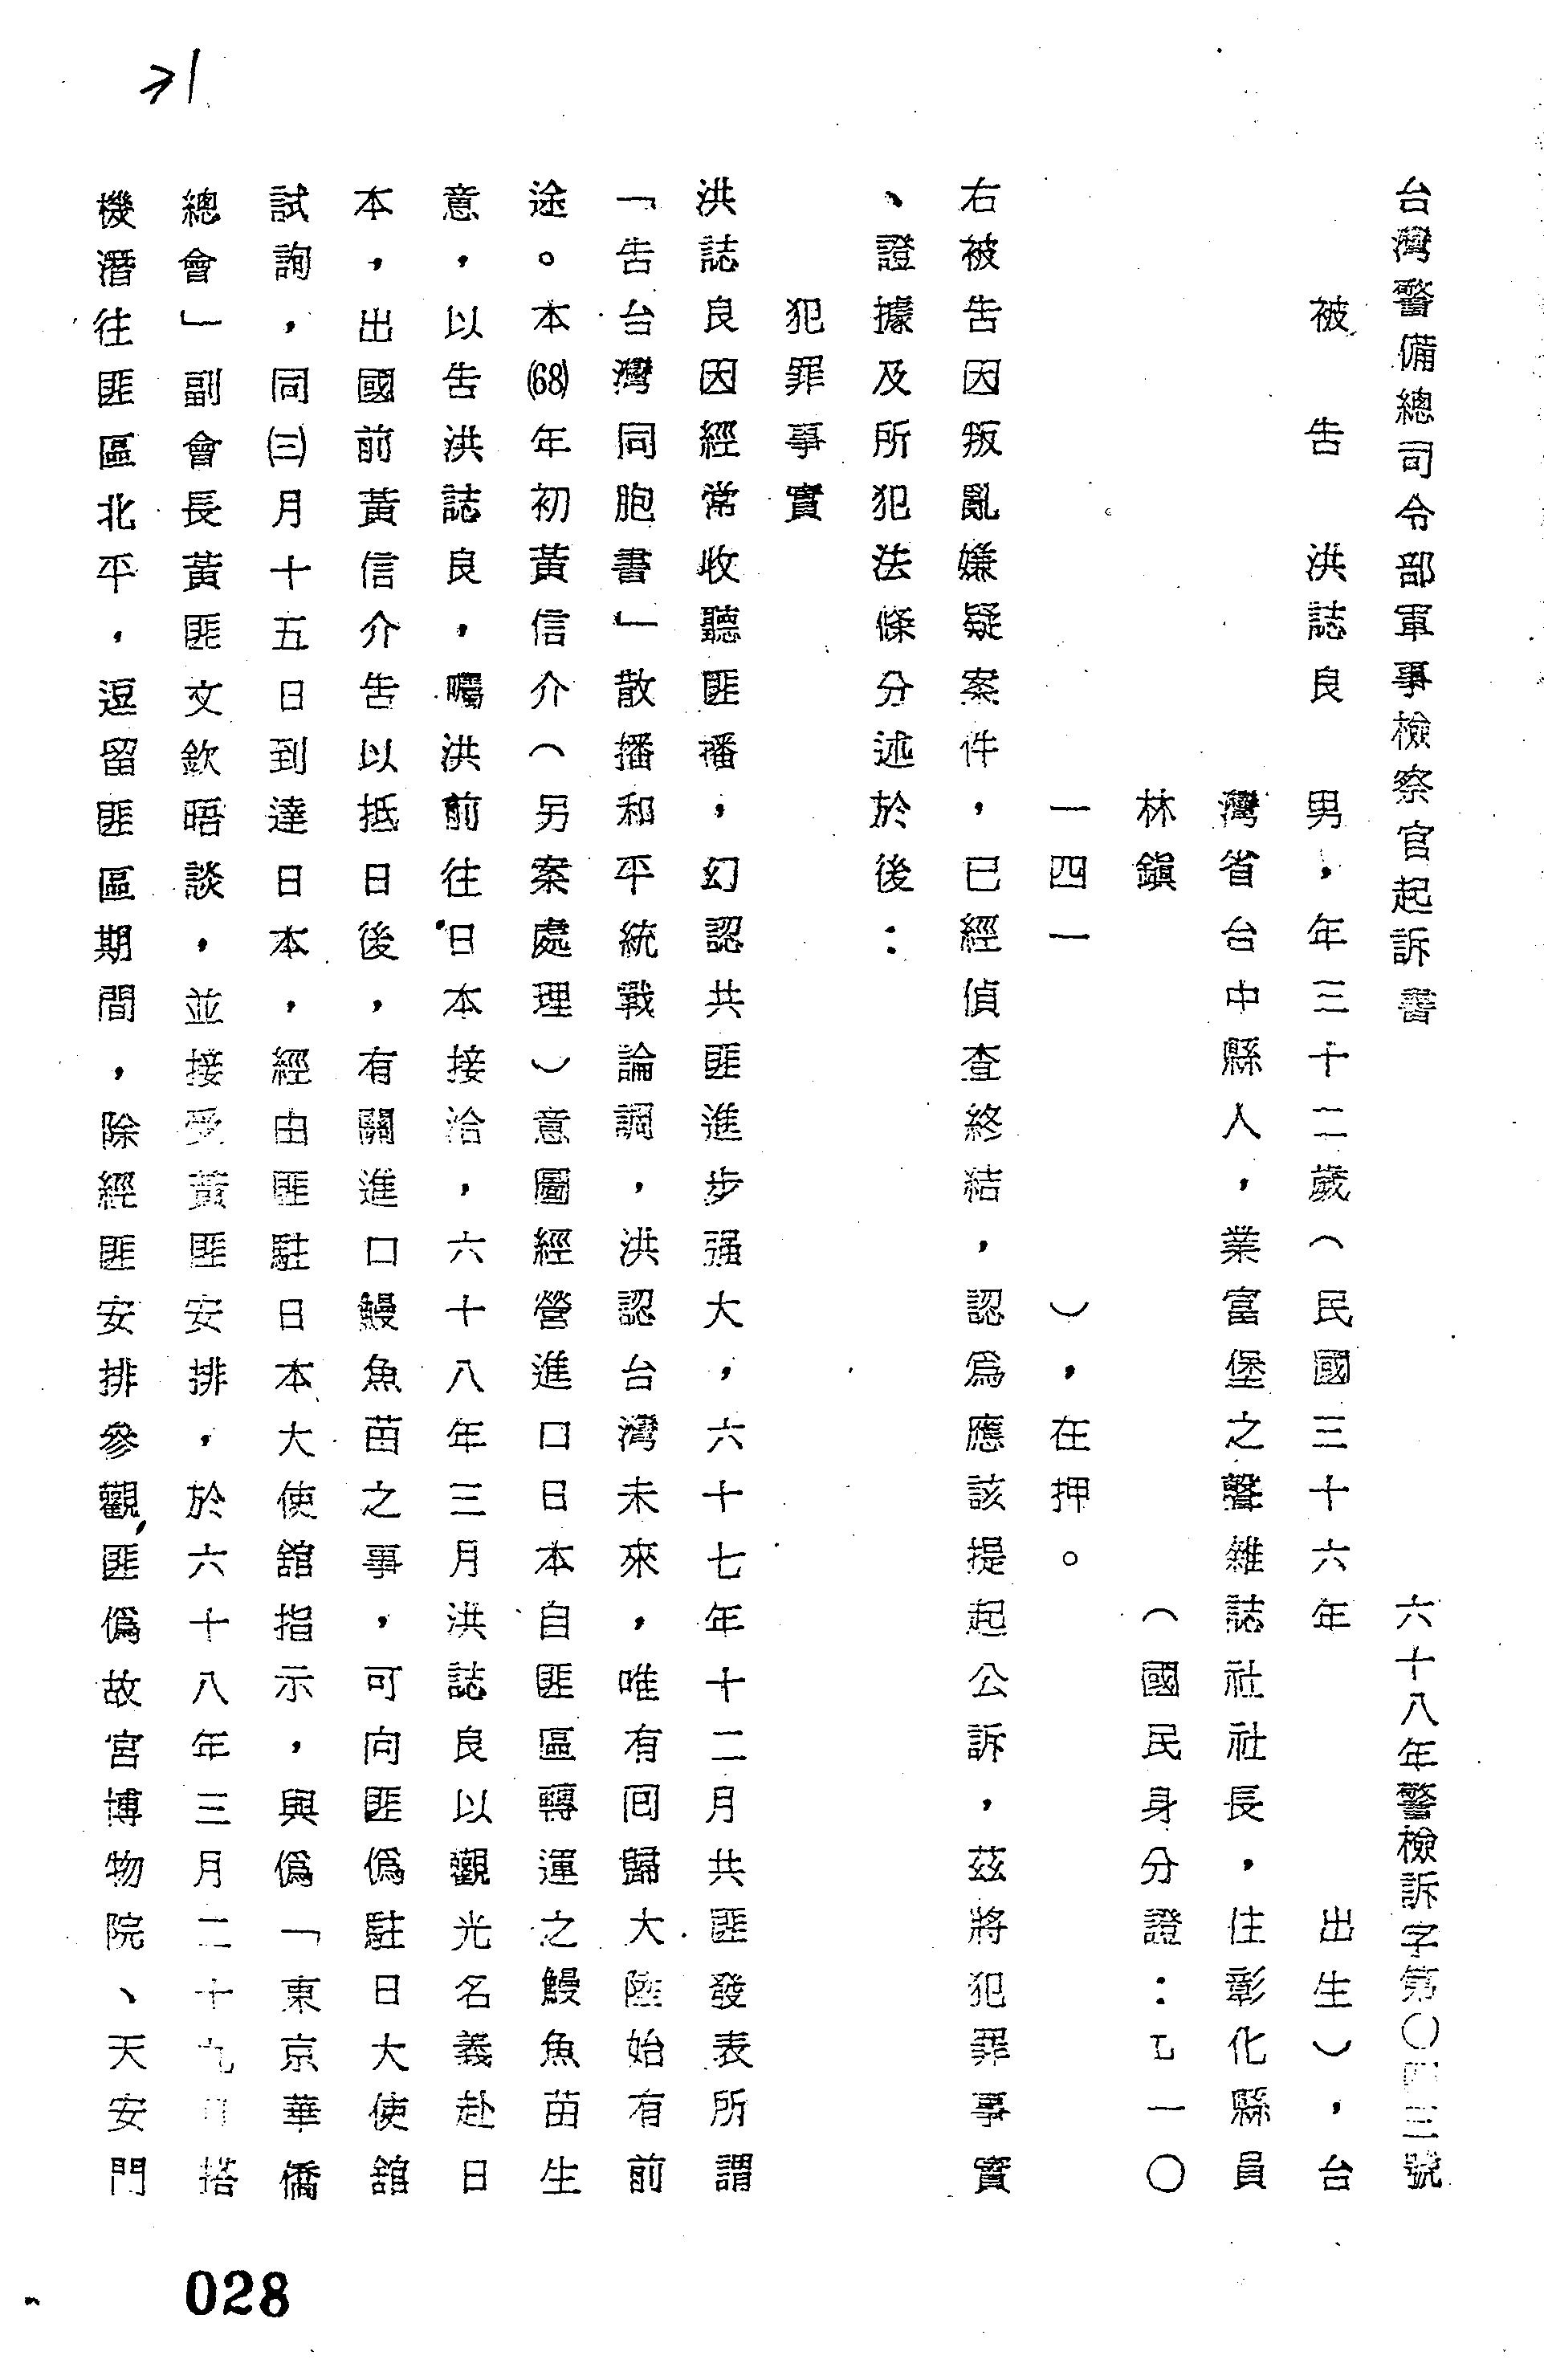 台灣警備總司令部軍事檢察官起訴書
六十八年警檢訴字第〇四三號
被告 洪誌良 男，年三十二歲（民國三十六年 出生），台
灣省台中縣人，業富堡之聲雜誌社社長，住彰化縣員
林鎮 （國民身分證：L一〇
一四一 ），在押。
右被告因叛亂嫌疑案件，已經偵查終結，認爲應該提起公訴，茲將犯罪事實
、證據及所犯法條分述於後：
犯罪事實
洪誌良因經常收聽匪播，幻認共匪進步强大，六十七年十二月共匪發表所謂
「告台灣同胞書」散播和平統戰論調，洪認台灣未來，唯有回歸大陸始有前
途。本(68)年初黃信介（另案處理）意圖經營進口日本自匪區轉運之鰻魚苗生
意，以告洪誌良，囑洪前往日本接洽，六十八年三月洪誌良以觀光名義赴日
本，出國前黃信介告以抵日後，有關進口鰻魚苗之事，可向匪僞駐日大使舘
試詢，同(三)月十五日到達日本，經由匪駐日本大使舘指示，與僞「東京華僑
總會」副會長黃匪文欽晤談，並接受黃匪安排，於六十八年三月二十九日搭
機潛往匪區北平，逗留匪區期間，除經匪安排參觀匪僞故宮博物院、天安門
028
31